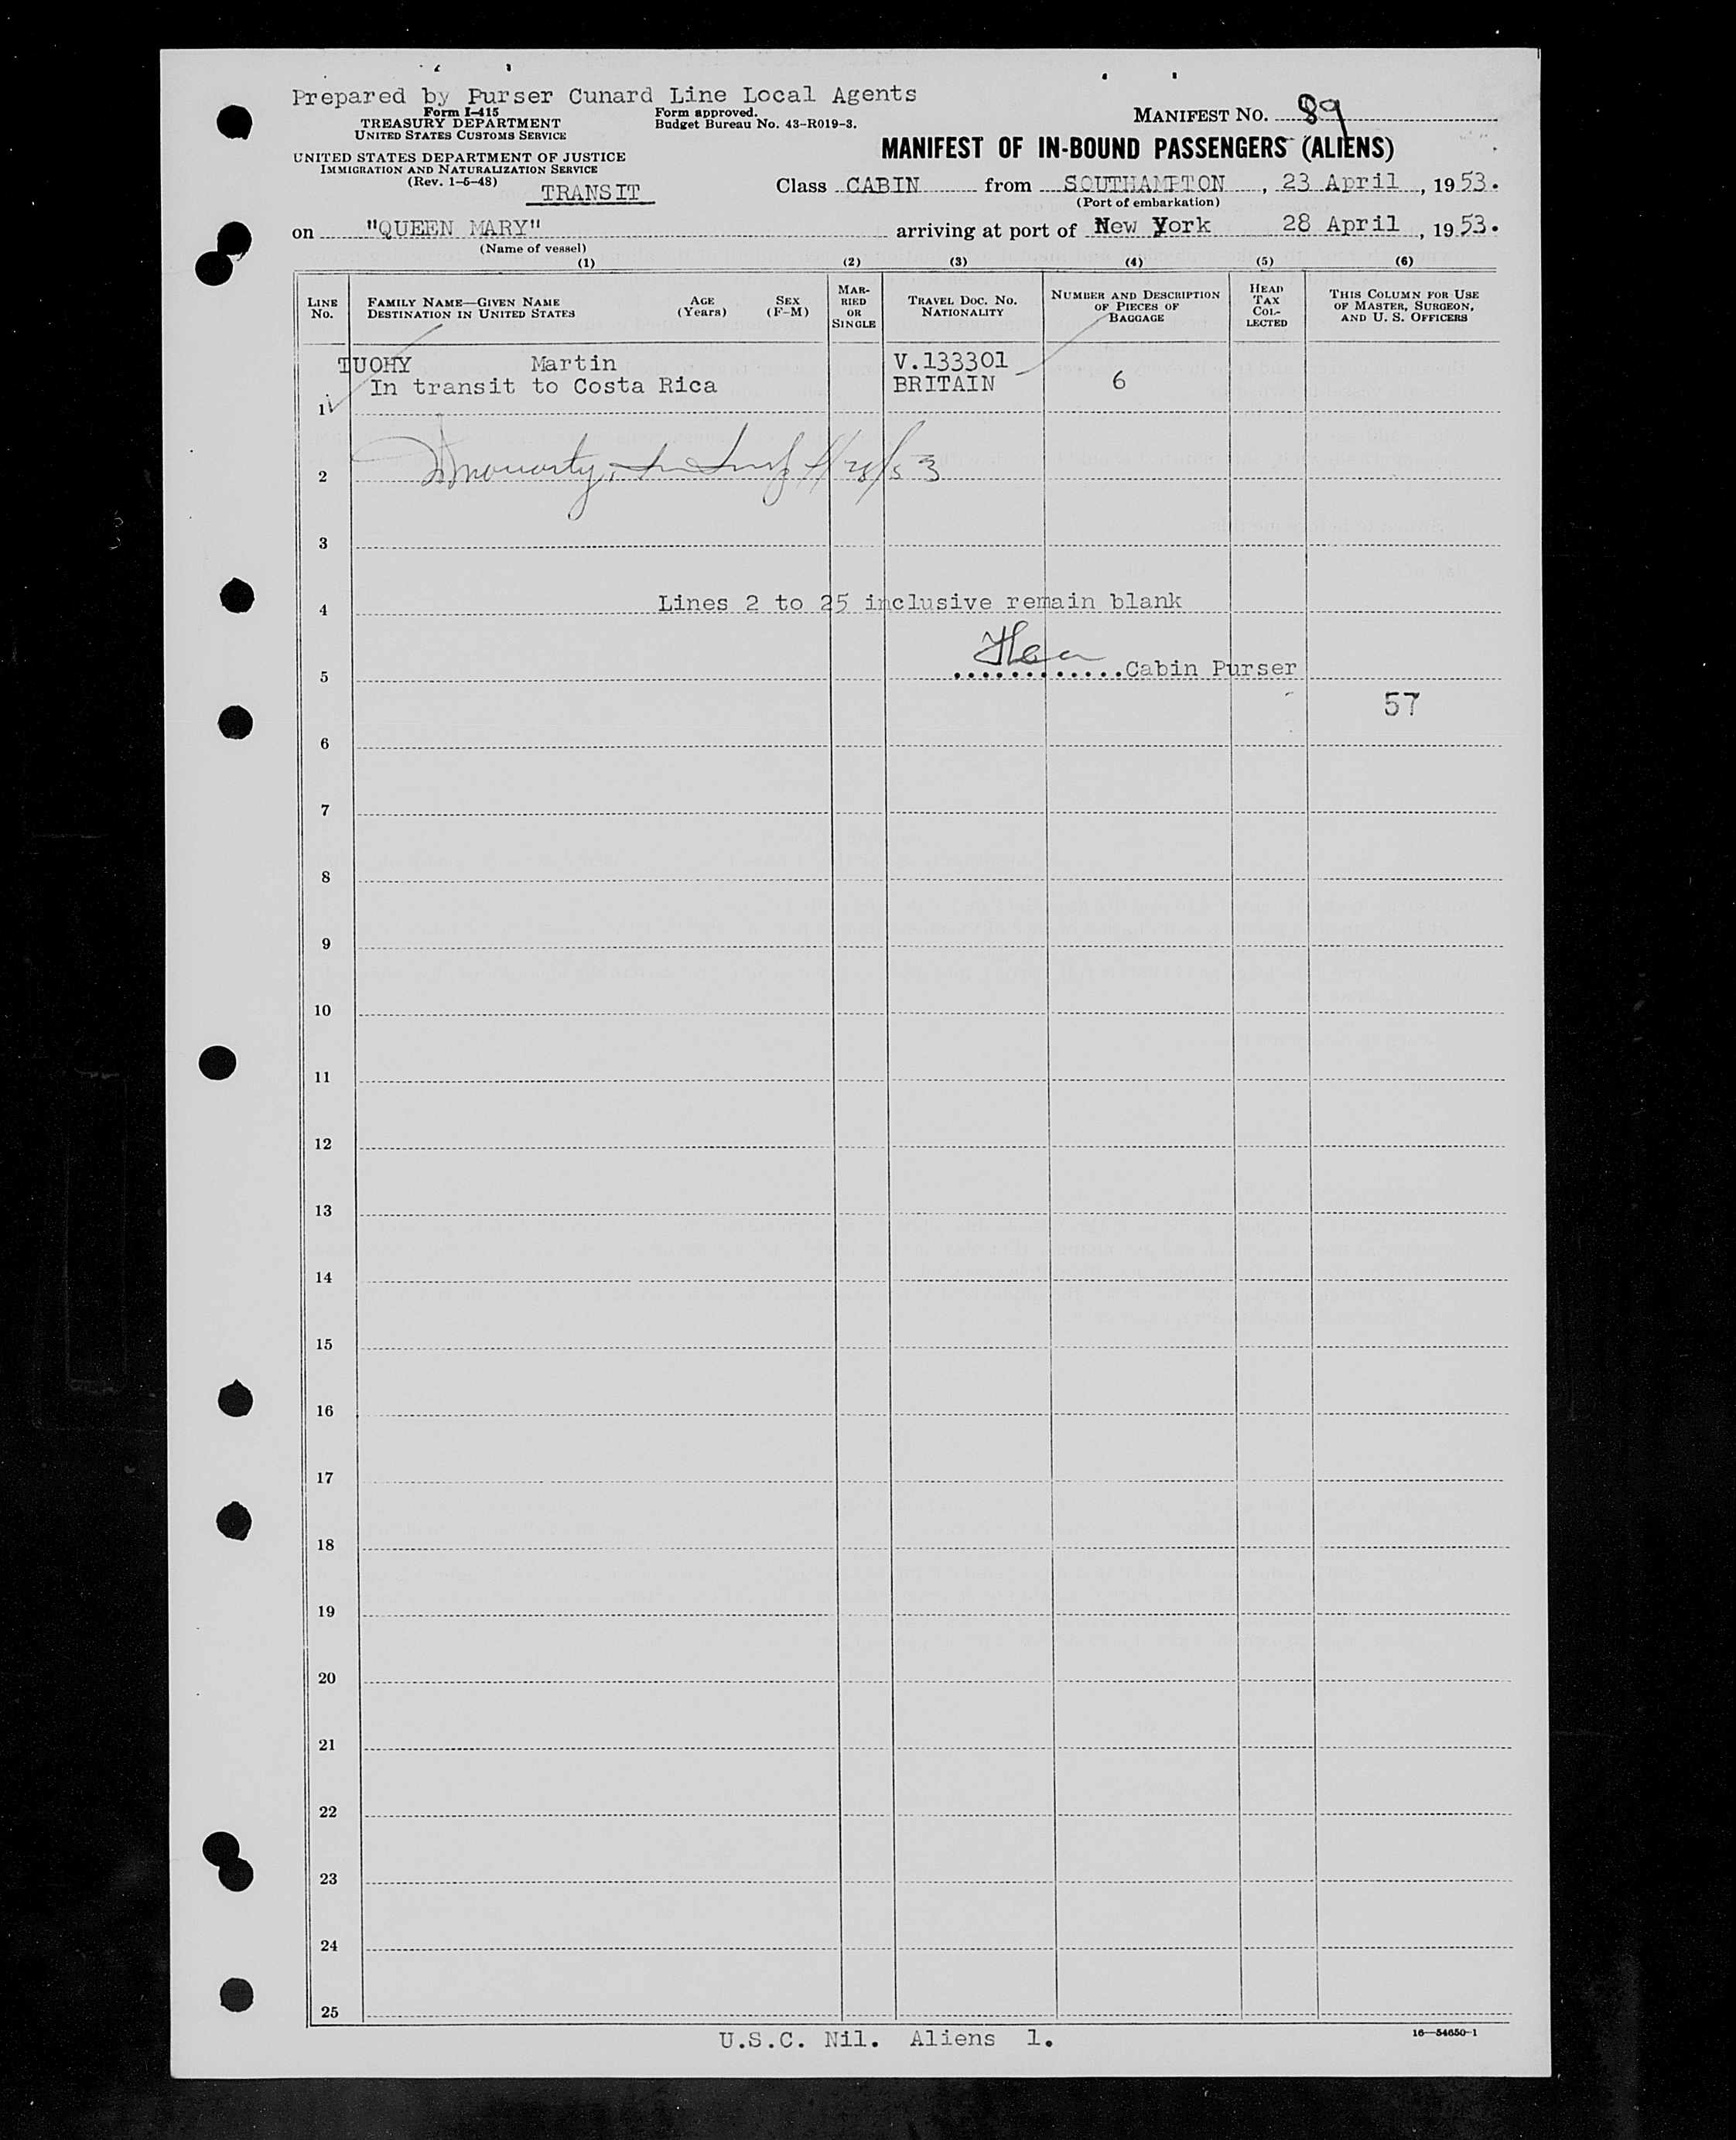 Prepared by Purser Cunard Line Local Agents
Form I-415
TREASURY DEPARTMENT
UNITED STATES CUSTOMS SERVICE
Form approved.
Budget Bureau No. 43-R019-3.
MANIFEST NO. 89
MANIFEST OF IN-BOUND PASSENGERS (ALIENS)
UNITED STATES DEPARTMENT OF JUSTICE
IMMIGRATION AND NATURALIZATION SERVICE
(Rev. 1-5-48)
TRANSIT
Class CABIN from SOUTHAMPTON, 23 April, 1953.
(Port of embarkation)
on "QUEEN MARY" arriving at port of New York 28 April, 1953.
(Name of vessel)
(1) (2) (3) (4) (5) (6)
LINE NO.
FAMILY NAME—GIVEN NAME
DESTINATION IN UNITED STATES
AGE (Years)
SEX (F-M)
MARRIED OR SINGLE
TRAVEL DOC. NO. NATIONALITY
NUMBER AND DESCRIPTION OF PIECES OF BAGGAGE
HEAD TAX COLLECTED
THIS COLUMN FOR USE OF MASTER, SURGEON, AND U. S. OFFICERS
TUOHY Martin V.133301
In transit to Costa Rica BRITAIN 6
1
2 4/28/53
3
4 Lines 2 to 25 inclusive remain blank
5 Cabin Purser
57
6
7
8
9
10
11
12
13
14
15
16
17
18
19
20
21
22
23
24
25
U.S.C. Nil. Aliens 1.
16—54650-1